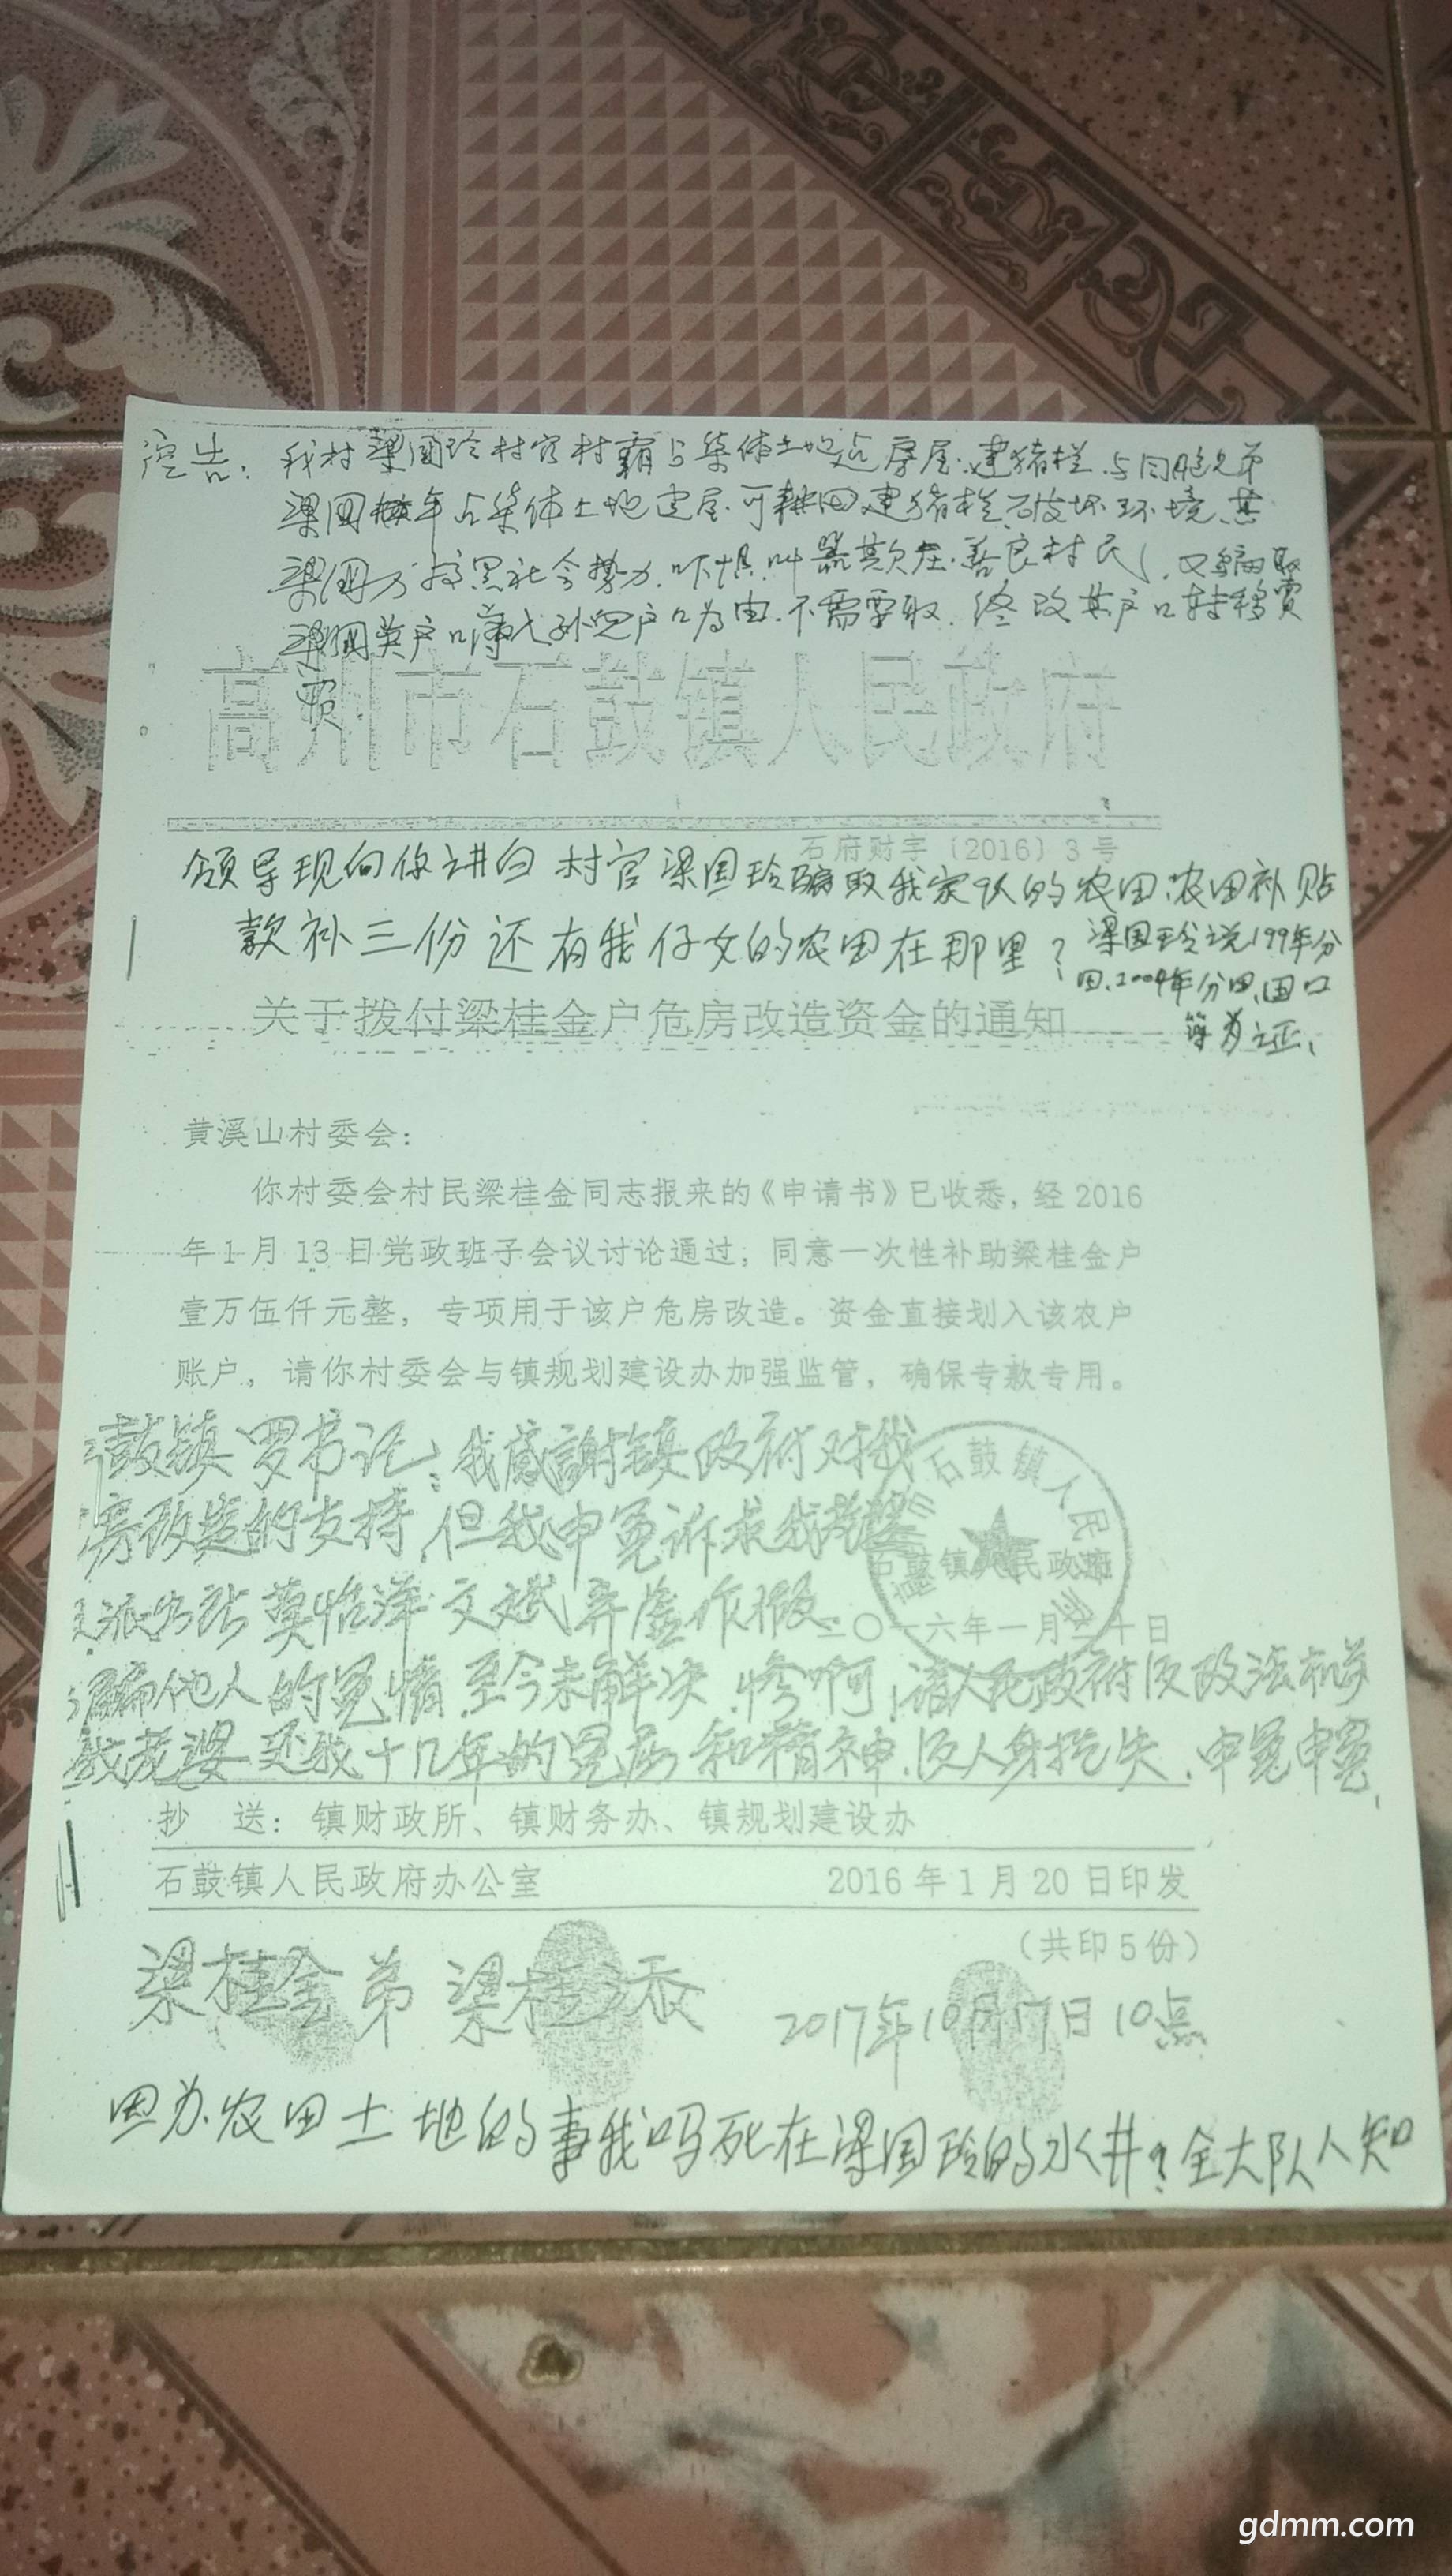 控告：我村梁国玲村官村霸占集体土地起房屋.建猪栏.与同胞兄弟
梁国 年占集体土地建屋.可耕田建猪栏破坏环境.其
梁国 黑社会势力.吓惧.叫嚣欺 善良村民，又骗取
梁国英户口簿 户口为由.不需要取.终改其户口转移费
费
高州市石鼓镇人民政府
石府财字〔2016〕3号
领导现向你讲白 村官梁国玲骗取我家 的农田.农田补贴
款补三份还有我仔女的农田在那里？
梁国玲说199年分
田.2004年分田.田口
簿为证、
关于拨付梁桂金户危房改造资金的通知
黄溪山村委会：
你村委会村民梁桂金同志报来的《申请书》已收悉，经2016
年1月13日党政班子会议讨论通过，同意一次性补助梁桂金户
壹万伍仟元整，专项用于该户危房改造。资金直接划入该农户
账户，请你村委会与镇规划建设办加强监管，确保专款专用。
鼓镇罗书记：我感謝镇政府对我
房改造的支持，但我申冤诉求我老婆
石鼓镇人民政府
派出所莫怡洋文斌弄虚作假
二〇一六年一月二十日
骗他人的冤情至今未解决.惨啊！请人民政府及政法机
我老婆还我十几年的冤屈和精神.及人身损失、申冤申冤、
抄　送：镇财政所、镇财务办、镇规划建设办
石鼓镇人民政府办公室 2016年1月20日印发
（共印5份）
梁桂金弟 梁桂添 2017年10月17日10点
因为农田土地的事我吗死在梁国玲的水井？全大队人知
gdmm.com